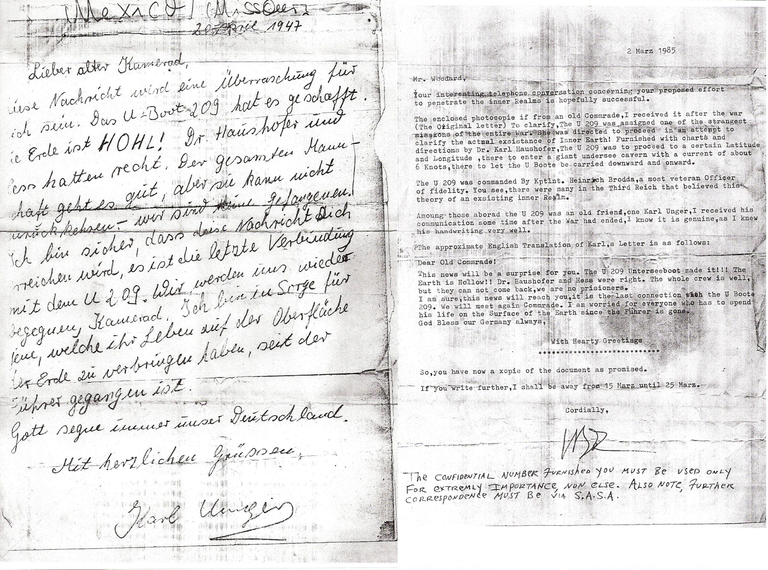 (Mexico) (Missouri)
20 April 1947
Lieber alter Kamerad,
iese Nachricht wird eine Überraschung für
ich sein. Das U-Boot 209 hat es geschafft.
ie Erde ist HOHL! Dr. Haushofer und
ess hatten recht. Der gesamten Mann-
haft geht es gut, aber sie kann nicht
urückkehren. wir sind keine Gefangenen!
Ich bin sicher, dass diese Nachricht Dich
rreichen wird, es ist die letzte Verbindung
mit dem U 209. Wir werden uns wieder
begegnen, Kamerad. Ich bin in Sorge für
jene, welche ihr Leben auf der Oberfläche
der Erde zu verbringen haben, seit der
Führer gegangen ist.
Gott segne immer unser Deutschland.
Mit herzlichen Grüssen,
Karl Unger
2 Marz 1985
Mr. Woodard,
Your interesting telephone conversation concerning your proposed effort
to penetrate the inner Realms is hopefully successful.
The enclosed photocopie if from an old Comrade,I received it after the war
(The Original letter) To clarify,The U 209 was assigned one of the strangest
missions of the entire War. She was directed to proceed in an attempt to
clarify the actual exsistance of Inner Earth! Furnished with charts and
directions by Dr. Karl Haushofer,The U 209 was to proceed to a certain Latitude
and Longitude ,there to enter a giant undersee cavern with a current of about
6 Knots,there to let the U Boote be carried downward and onward.
The U 209 was commanded By Kptlnt. Heinrich Brodda,a most veteran Officer
of fidelity. You see,there were many in the Third Reich that believed this
theory of an exsisting inner Realm.
Anoung those aborad the U 209 was an old friend,one Karl Unger,I received his
communication some time after the War had ended,I know it is genuine,as I knew
his handwriting very well.
The approximate English Translation of Karl,s Letter is as follows:
Dear Old Comrade!
This news will be a surprise for you. The U 209 Unterseeboot made it!!! The
Earth is Hollow!! Dr. Haushofer and Hess were right. The whole crew is well,
but they can not come back,we are no prisoners.
I am sure,this news will reach you,it is the last connection with the U Boote
209. We will meet again Comrade. I am worried for everyone who has to spend
his life on the Surface of the Earth since the Führer is gone.
God Bless our Germany always,
With Hearty Greetings
So,you have now a xopie of the document as promised.
If you write further,I shall be away from 15 Marz until 25 Marz.
Cordially,
THE CONFIDENTIAL NUMBER FURNISHED YOU MUST BE USED ONLY
FOR EXTREMLY IMPORTANCE, NON ELSE. ALSO NOTE, FURTHER
CORRESPONDENCE MUST BE VIA S.A.S.A.